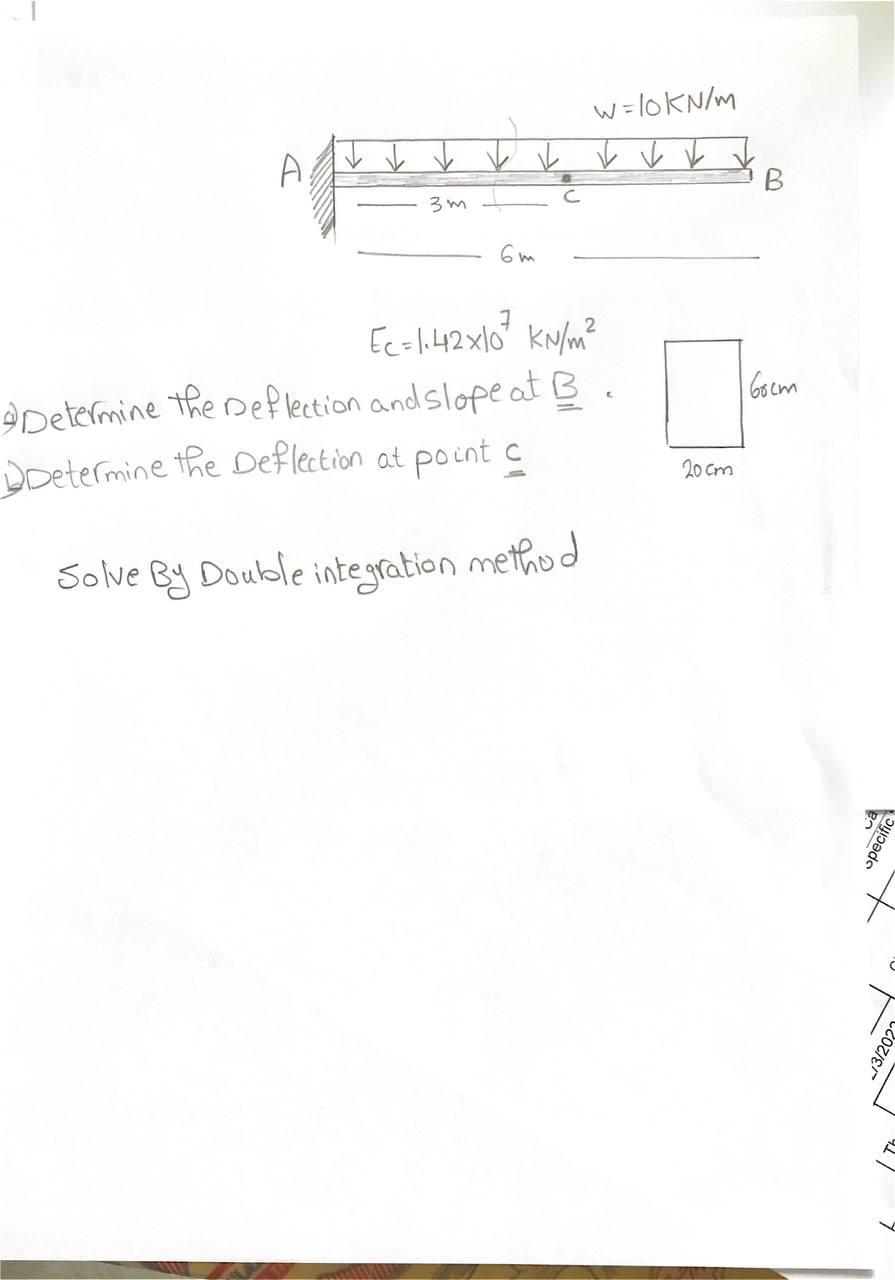 w=10KN/m
A
B
3m
C
6m
Ec=1.42x10⁷ KN/m²
a) Determine the Deflection and slope at B .
60cm
b) Determine the Deflection at point c
20cm
Solve By Double integration method
specific
/3/202
Th